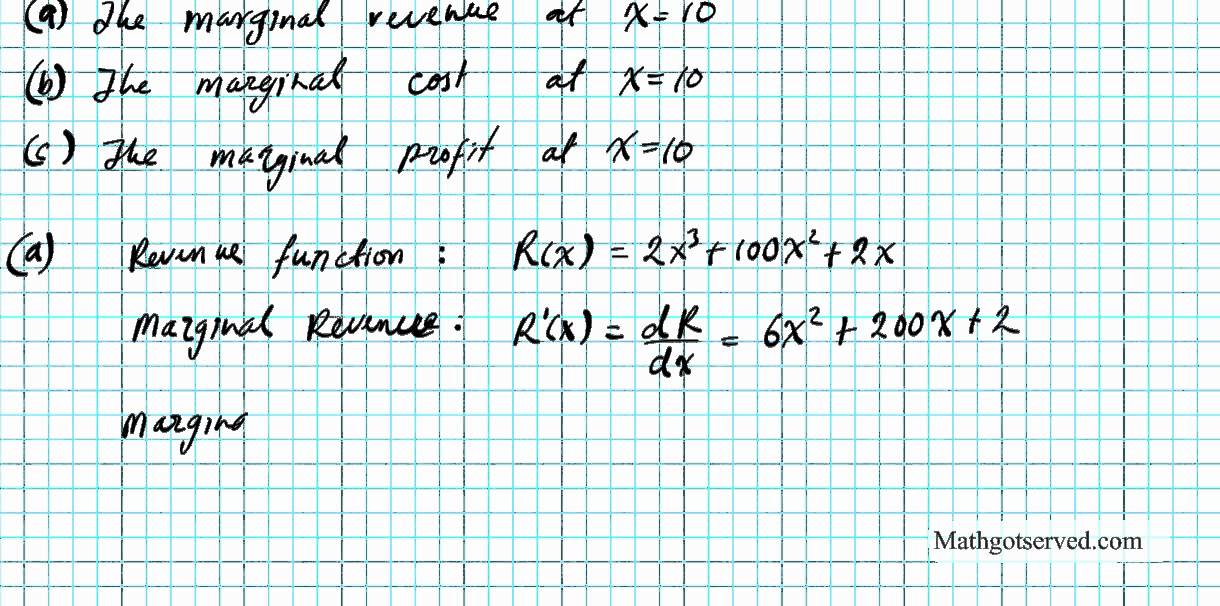 (a) The marginal revenue at x=10
(b) The marginal cost at x=10
(c) The marginal profit at x=10
(a) Revenue function : R(x) = 2x³ + 100x² + 2x
Marginal Revenue : R'(x) = dR/dx = 6x² + 200x + 2
Margina
Mathgotserved.com